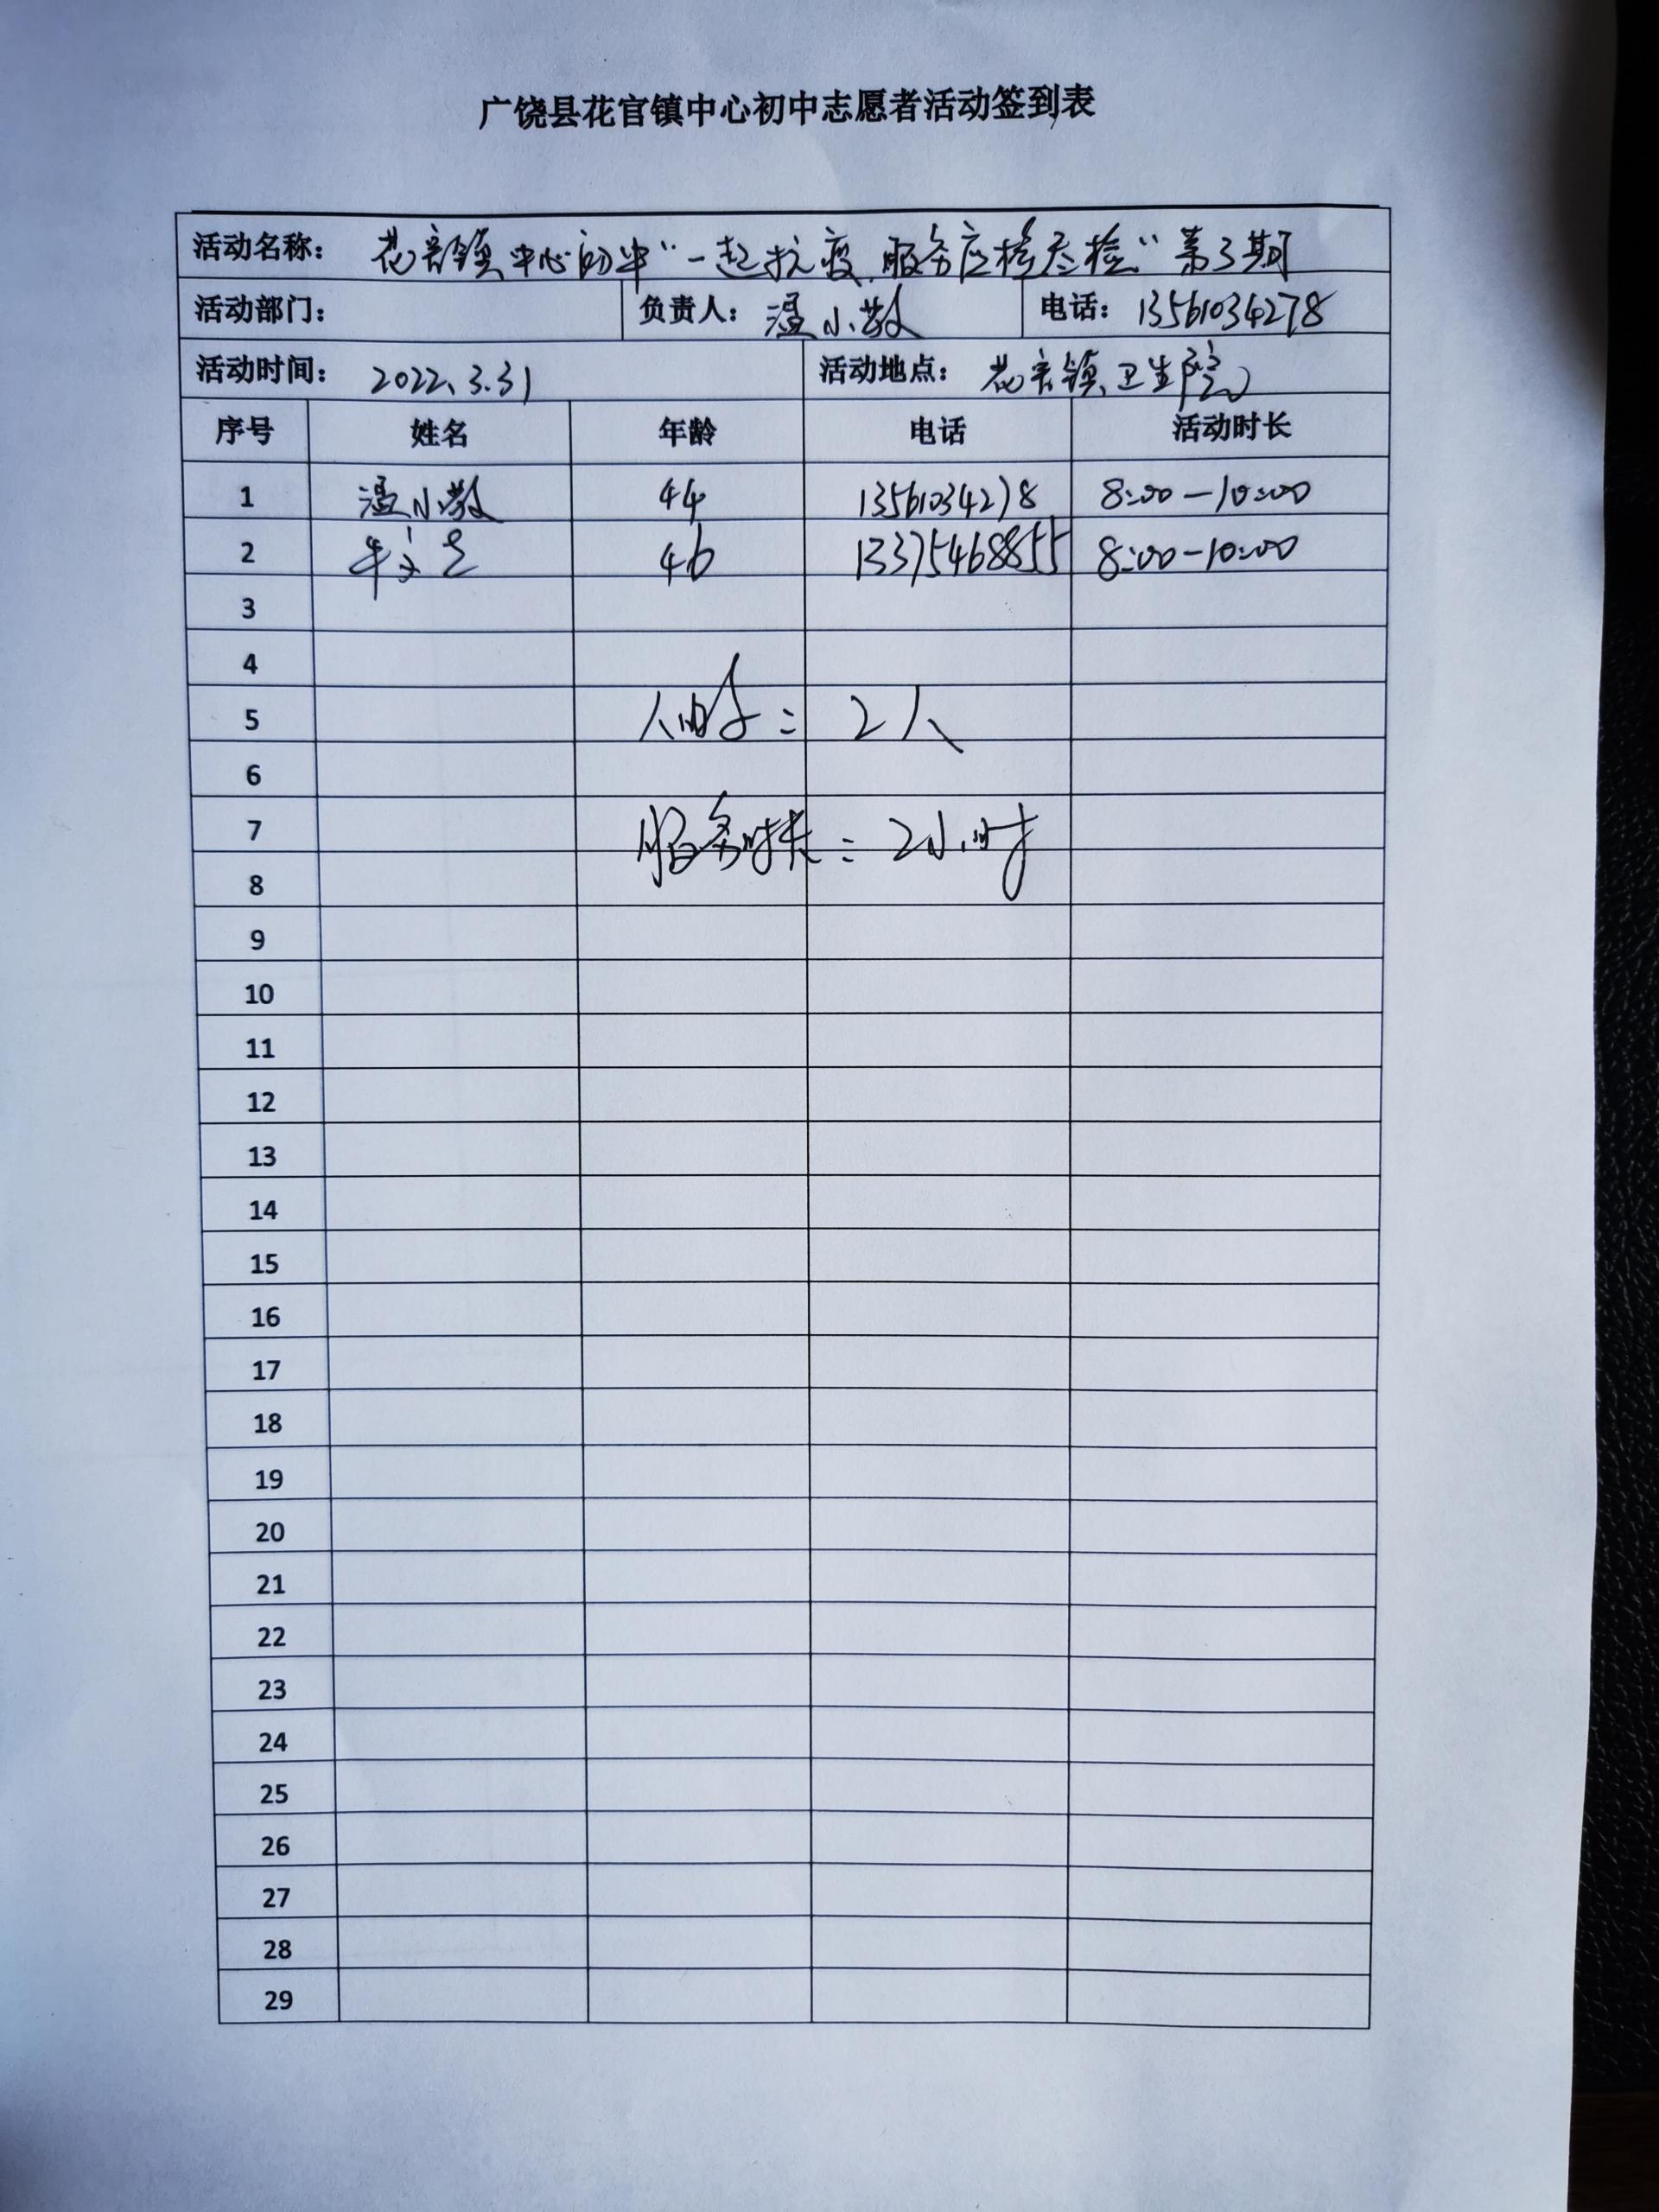 广饶县花官镇中心初中志愿者活动签到表
活动名称： 花官镇中心初中“一起抗疫，服务应检尽检”第3期
活动部门： 负责人： 温小敏 电话： 13561034278
活动时间： 2022.3.31 活动地点： 花官镇卫生院
序号 姓名 年龄 电话 活动时长
1 温小敏 44 13561034278 8:00—10:00
2 46 13375468855 8:00—10:00
3
4
5 2人
6
7 服务时长：2小时
8
9
10
11
12
13
14
15
16
17
18
19
20
21
22
23
24
25
26
27
28
29